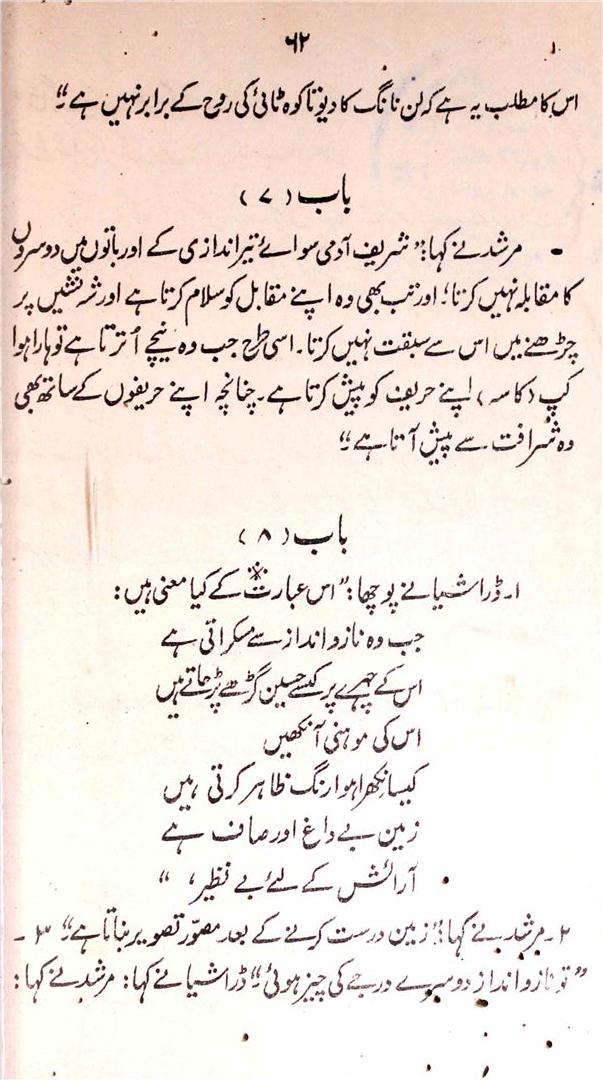 ۶۲
اس کا مطلب یہ ہے کہ لن نانگ کا دیوتا کوہ ٹائی کی روح کے برابر نہیں ہے۔"
باب (۷)
• مرشد نے کہا: "شریف آدمی سوائے تیراندازی کے اور باتوں میں دوسروں
کا مقابلہ نہیں کرتا؛ اور تب بھی وہ اپنے مقابل کو سلام کرتا ہے اور شہ نشیں پر
چڑھنے میں اس سے سبقت نہیں کرتا۔ اسی طرح جب وہ نیچے اُترتا ہے تو ہارا ہوا
کپ (کاسہ) اپنے حریف کو پیش کرتا ہے۔ چنانچہ اپنے حریفوں کے ساتھ بھی
وہ شرافت سے پیش آتا ہے۔"
باب (۸)
۱۔ ڈراشیا نے پوچھا: "اس عبارت* کے کیا معنی ہیں:
جب وہ ناز و انداز سے مسکراتی ہے
اس کے چہرے پر کیسے حسین گڑھے پڑ جاتے ہیں
اس کی موہنی آنکھیں
کیسا نکھرا ہوا رنگ ظاہر کرتی ہیں
زمین بے داغ اور صاف ہے
آرائش کے لئے بے نظیر، "
۲۔ مرشد نے کہا: "زمین درست کرنے کے بعد مصوّر تصویر بناتا ہے" ۳۔
"تو ناز و انداز دوسرے درجے کی چیز ہوئی۔" ڈراشیا نے کہا: مرشد نے کہا: